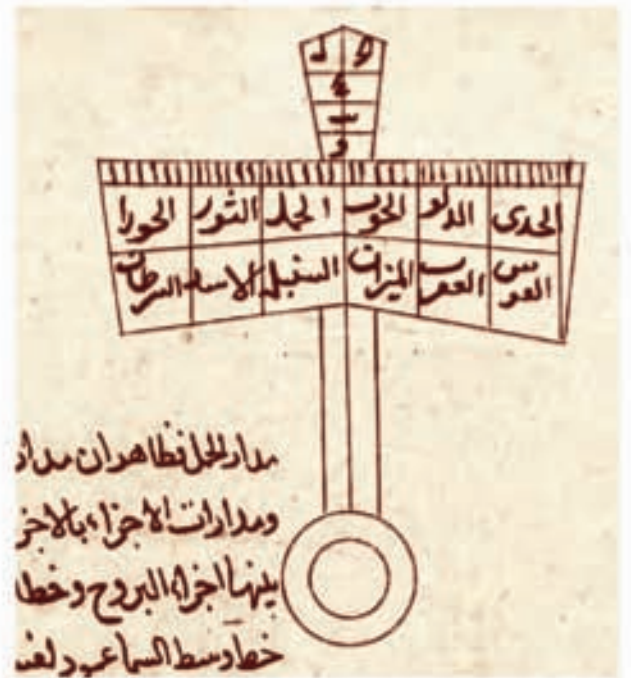 الجدى الدلو الحوت الحمل الثور الجوزا
القوس العقرب الميزان السنبله الاسد السرطان
مدار الحمل فظاهر ان مدار
ومدارات الاجزاء بالاجز
بينها اجزاء البروج وخطا
خط وسط السما